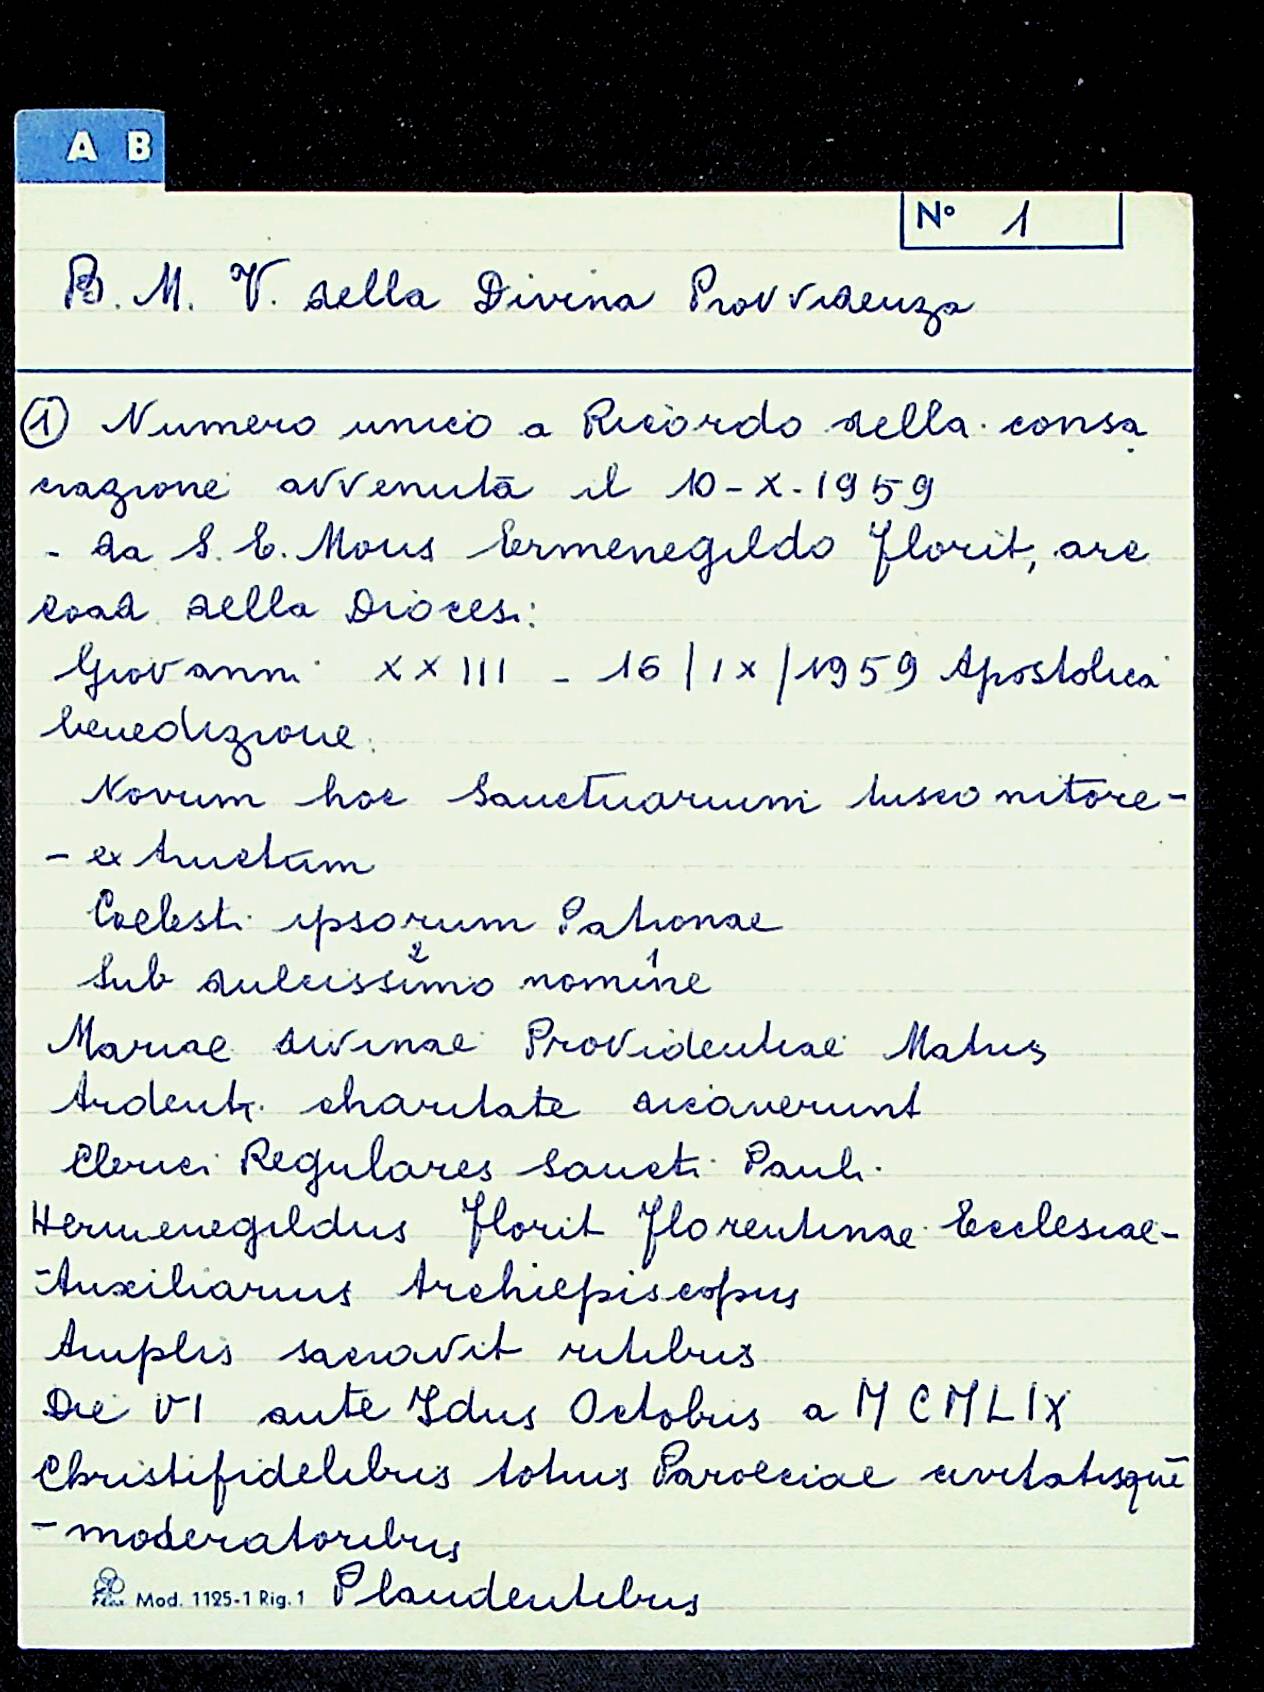 A B
N° 1
B. M. V. della Divina Provvidenza
① Numero unico a Ricordo della consa
crazione avvenuta il 10-X-1959
- da S. E. Mons Ermenegildo Florit, arc
coad. della Diocesi:
Giovanni XXIII - 16/IX/1959 Apostolica
benedizione.
Novum hoc Sanctuarium tusco nitore-
- extructum
Coelesti ipsorum Patronae
2 1
Sub dulcissimo nomine
Mariae divinae Providentiae Matris
Ardenti charitate dicaverunt
Clerici Regulares Sancti Pauli.
Hermenegildus Florit Florentinae Ecclesiae-
-Auxiliarius Archiepiscopus
Amplis sacravit ritibus
Die VI ante Idus Octobris a MCMLIX
Christifidelibus totius Paroeciae civitatisque
- moderatoribus
Mod. 1125-1 Rig. 1 Plaudentibus